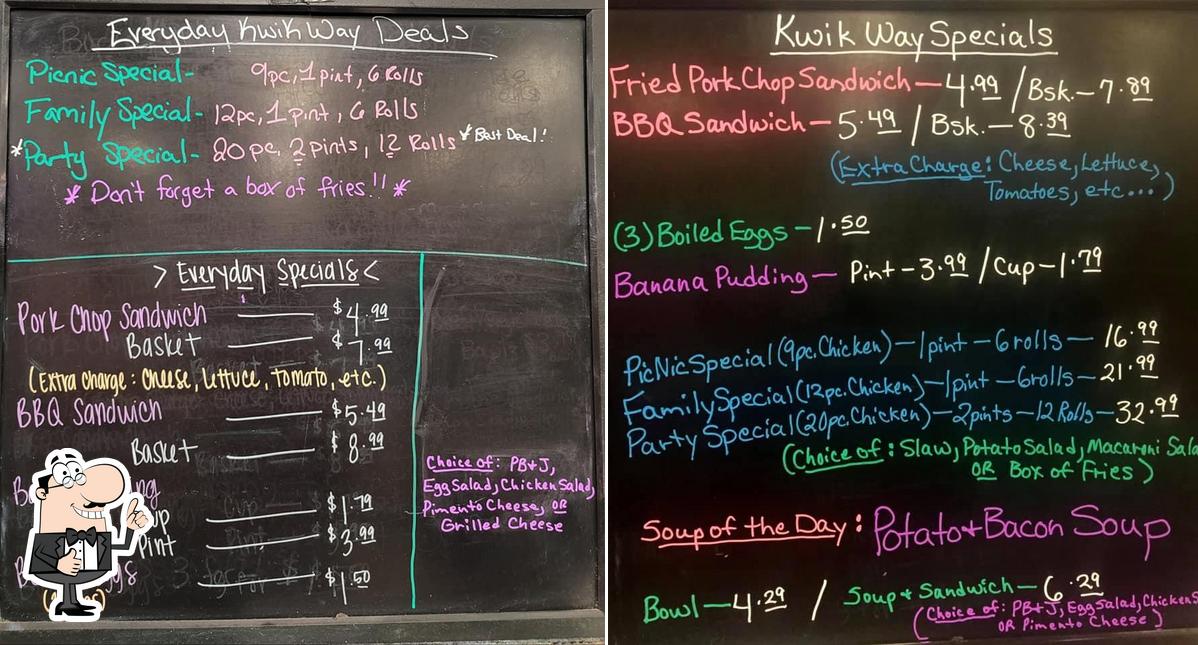 Everyday Kwik Way Deals
Picnic Special- 9pc, 1 pint, 6 Rolls
Family Special- 12pc, 1 pint, 6 Rolls
*Party Special- 20 pc, 2 pints, 12 Rolls *Best Deal!
* Don't forget a box of fries!! *
> Everyday Specials <
Pork Chop Sandwich $4.99
Basket $7.99
(Extra charge: Cheese, Lettuce, Tomato, etc.)
BBQ Sandwich $5.49
Basket $8.99
$1.79
Pint $3.99
$1.50
Choice of: PB+J,
Egg Salad, Chicken Salad,
Pimento Cheese, OR
Grilled Cheese
Kwik Way Specials
Fried Pork Chop Sandwich — 4.99 / Bsk. — 7.89
BBQ Sandwich — 5.49 / Bsk. — 8.39
(Extra Charge: Cheese, Lettuce,
Tomatoes, etc...)
(3) Boiled Eggs — 1.50
Banana Pudding — Pint - 3.99 / Cup - 1.79
PicNic Special (9pc. Chicken) — 1 pint — 6 rolls — 16.99
Family Special (12pc. Chicken) — 1 pint — 6 rolls — 21.99
Party Special (20pc. Chicken) — 2 pints — 12 Rolls — 32.99
(Choice of: Slaw, Potato Salad, Macaroni Sala
OR Box of Fries)
Soup of the Day: Potato + Bacon Soup
Bowl — 4.29 / Soup + Sandwich — 6.29
(Choice of: PB+J, Egg Salad, Chicken S
OR Pimento Cheese)